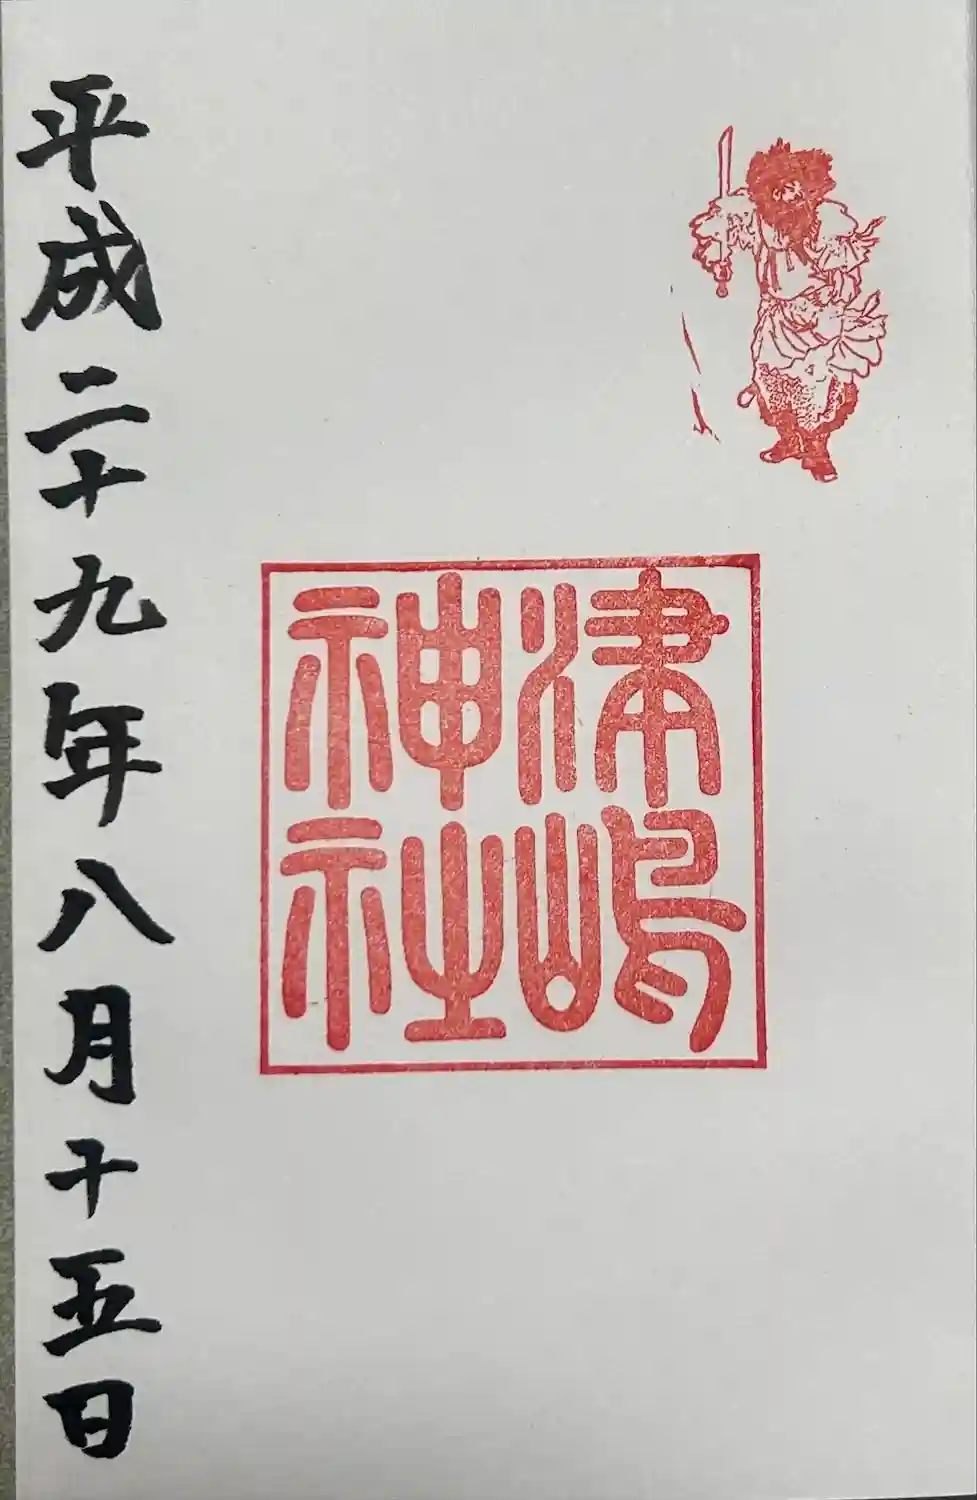 津嶋
神社
平成二十九年八月十五日